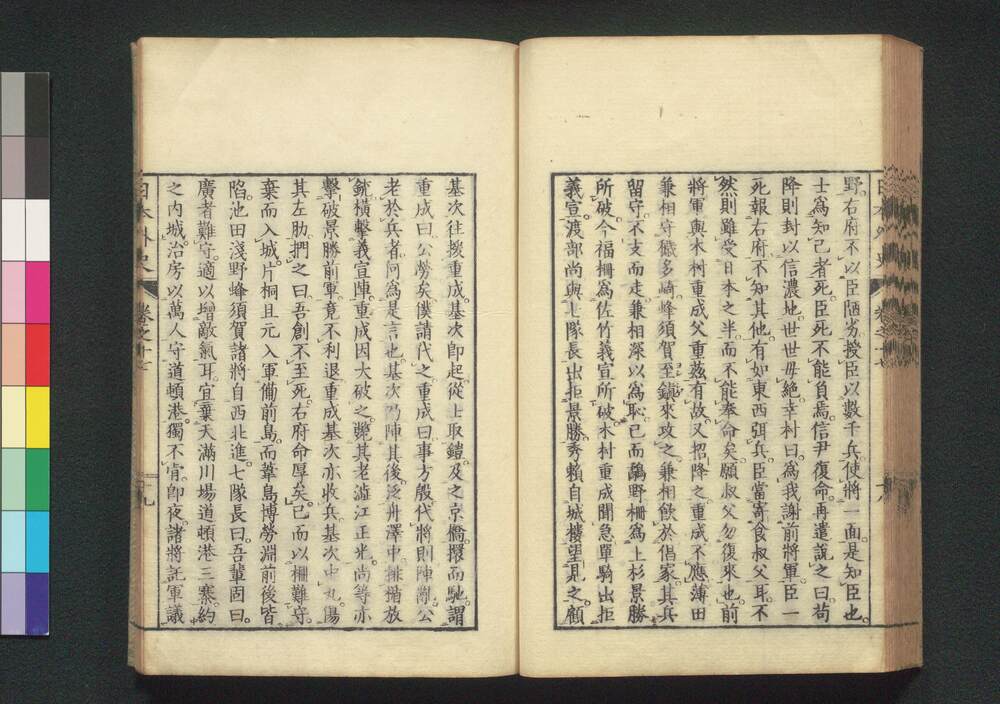 野。右府不以臣陋劣。授臣以數千兵。使將一面。是知臣也。
士爲知己者死。臣死不能負焉。信尹復命。再遣說之曰。苟
降則封以信濃地。世世毋絕。幸村曰。爲我謝前將軍。臣一
死報右府。不知其他。有如東西弭兵。臣當寄食叔父耳。不
然則雖受日本之半。而不能奉命矣。願叔父勿復來也。前
將軍與木村重成父重茲有故。又招降之。重成不應。薄田
兼相守穢多崎。蜂須賀至鎭來攻之。兼相飮於倡家。其兵
留守。不支而走。兼相深以爲恥。已而鷸野柵爲上杉景勝
所破。今福柵爲佐竹義宣所破。木村重成聞急。單騎出拒
義宣。渡部尚與七隊長出拒景勝。秀賴自城樓望見之。顧
基次往援重成。基次卽起。從上取鎧。及之京橋。擐而馳。謂
重成曰。公勞矣。僕請代之。重成曰。事方殷。代將則陣亂。公
老於兵者。何爲是言也。基次乃陣其後。泛舟澤中。排楯放
銃。橫擊義宣陣。重成因大破之。斃其老澁江正光。尚等亦
擊破景勝前軍。竟不利退。重成基次亦收兵。基次中丸。傷
其左肋。捫之曰。吾創不至死。右府命厚矣。已而以柵難守。
棄而入城。片桐且元入軍備前島。而葦島博勞淵前後皆
陷。池田淺野蜂須賀諸將自西北進。七隊長曰。吾輩固曰。
廣者難守。適以增敵氣耳。宜棄天滿川場道頓港三寨。約
之內城。治房以萬人守道頓港。獨不肯。卽夜。諸將託軍議
日本外史
卷之十七
十九